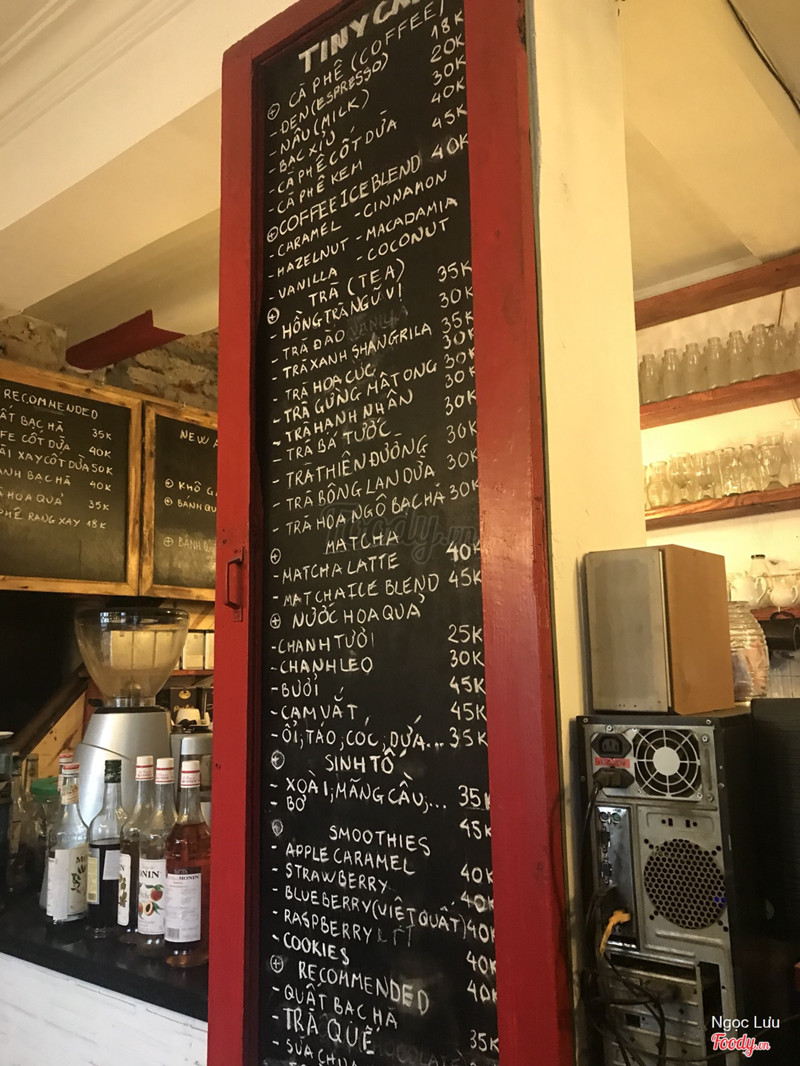 TINY CAF
⊕ CÀ PHÊ (COFFEE)
- ĐEN (ESPRESSO) 18K
- NÂU (MILK) 20K
- BẠC XỈU 30K
- CÀ PHÊ CỐT DỪA 40K
- CÀ PHÊ KEM 45K
⊕ COFFEE ICE BLEND 40K
- CARAMEL - CINNAMON
- HAZELNUT - MACADAMIA
- VANILLA - COCONUT
⊕ TRÀ (TEA)
- HỒNG TRÀ NGŨ VỊ 35K
- TRÀ ĐÀO 30K
- TRÀ XANH SHANGRILA 35K
- TRÀ HOA CÚC 30K
- TRÀ GỪNG MẬT ONG 30K
- TRÀ HẠNH NHÂN 30K
- TRÀ BÁ TƯỚC 30K
- TRÀ THIÊN ĐƯỜNG 30K
- TRÀ BÔNG LAN DỪA 30K
- TRÀ HOA NGÔ BẠC HÀ 30K
⊕ MATCHA
- MATCHA LATTE 40K
- MATCHA ICE BLEND 45K
⊕ NƯỚC HOA QUẢ
- CHANH TƯƠI 25K
- CHANH LEO 30K
- BƯỞI 45K
- CAM VẮT 45K
- ỔI, TÁO, CÓC, DỨA... 35K
⊕ SINH TỐ
- XOÀI, MÃNG CẦU,... 35K
- BƠ 45K
⊕ SMOOTHIES
- APPLE CARAMEL 40K
- STRAWBERRY 40K
- BLUEBERRY (VIỆT QUẤT) 40K
- RASPBERRY 40K
- COOKIES 40K
⊕ RECOMMENDED
- QUẤT BẠC HÀ 35K
- TRÀ QUẾ
- SỮA CHUA
RECOMMENDED
UẤT BẠC HÀ 35K
FE CỐT DỪA 40K
ÀI XAY CỐT DỪA 50K
ANH BẠC HÀ 40K
HOA QUẢ 35K
PHÊ RANG XAY 18K
NEW
⊕ KHÔ G
⊕ BÁNH QU
⊕ BÁNH
MONIN
MONIN
Foody.vn
Ngọc Lưu
Foody.vn